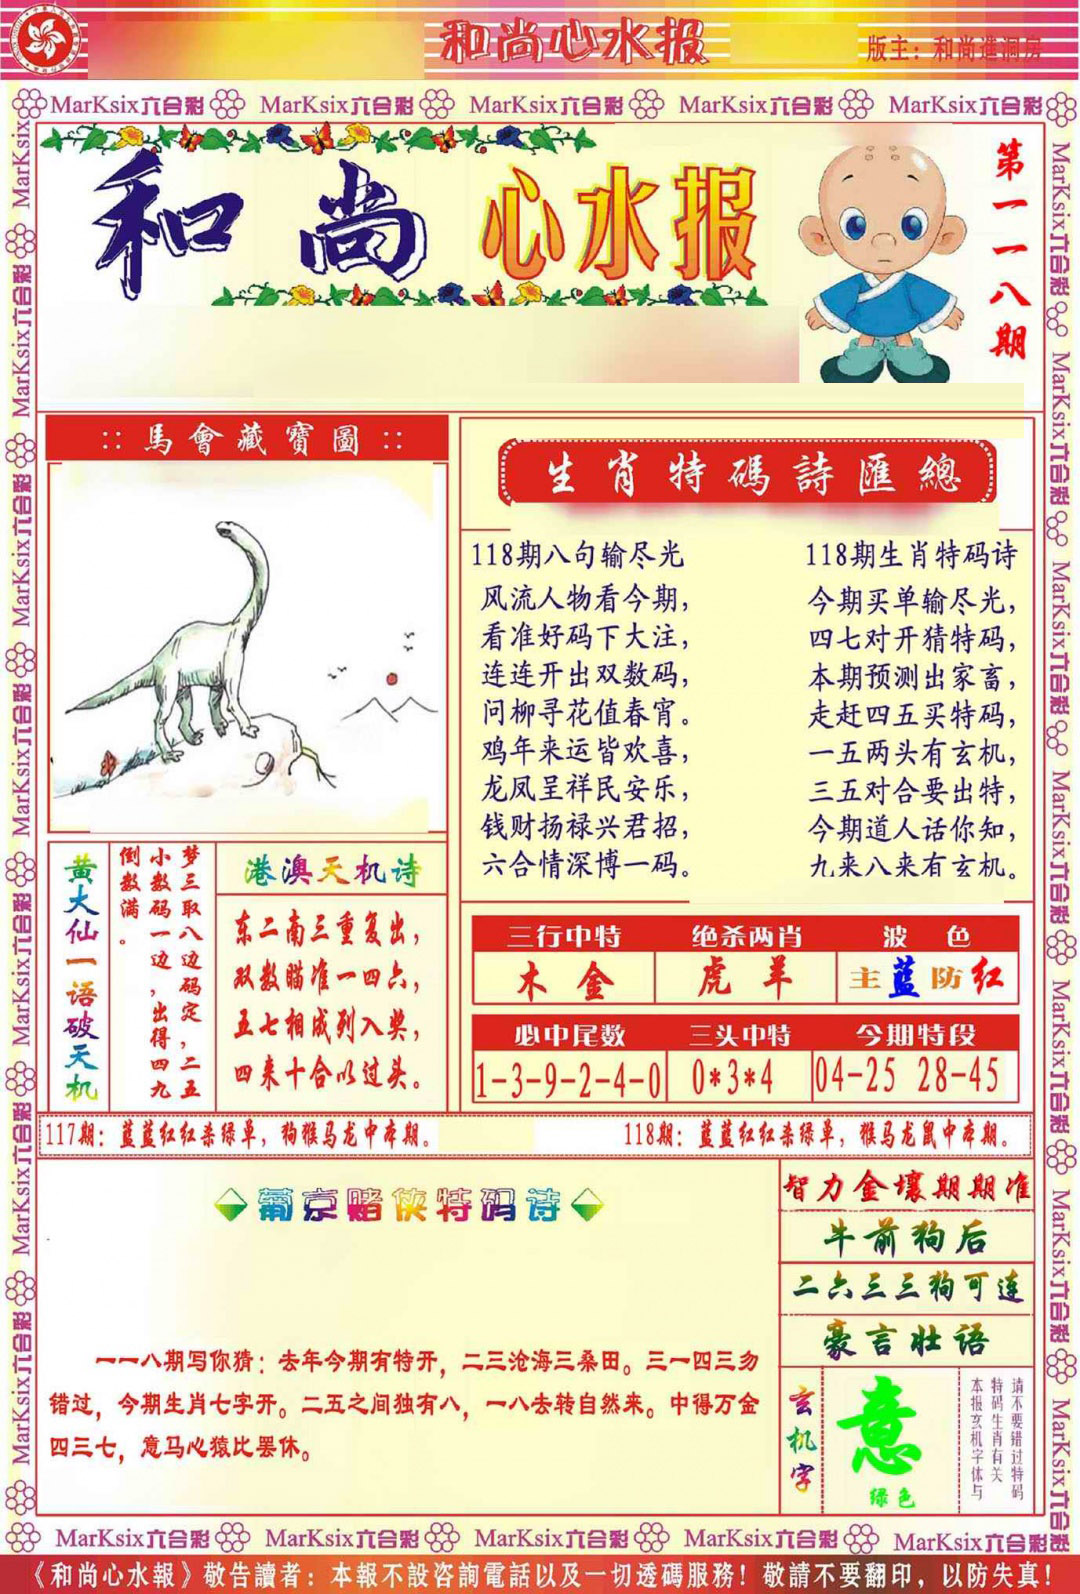 和尚心水报
版主：和尚進洞房
MarKsix六合彩 MarKsix六合彩 MarKsix六合彩 MarKsix六合彩 MarKsix六合彩
和尚心水报
第一一八期
:: 馬會藏寶圖 ::
生肖特碼詩匯總
118期八句输尽光
风流人物看今期，
看准好码下大注，
连连开出双数码，
问柳寻花值春宵。
鸡年来运皆欢喜，
龙凤呈祥民安乐，
钱财扬禄兴君招，
六合情深博一码。
118期生肖特码诗
今期买单输尽光，
四七对开猜特码，
本期预测出家畜，
走赶四五买特码，
一五两头有玄机，
三五对合要出特，
今期道人话你知，
九来八来有玄机。
黄大仙一语破天机
梦三取八边码定，二五
小数码一边，出得四九
倒数满。
港澳天机诗
东二南三重复出，
双数瞄准一四六，
五七相成列入奖，
四来十合以过头。
三行中特 绝杀两肖 波色
木金 虎羊 主蓝防红
必中尾数 三头中特 今期特段
1-3-9-2-4-0 0*3*4 04-25 28-45
117期：蓝蓝红红杀绿单，狗猴马龙中本期。
118期：蓝蓝红红杀绿单，猴马龙鼠中本期。
葡京赌侠特码诗
一一八期写你猜：去年今期有特开，二三沧海三桑田。三一四三勿
错过，今期生肖七字开。二五之间独有八，一八去转自然来。中得万金
四三七，意马心猿比罢休。
智力金壤期期准
牛前狗后
二六三三狗可连
豪言壮语
玄机字
意
绿色
请不要错过特码
特码生肖有关
本报玄机字体与
MarKsix六合彩 MarKsix六合彩 MarKsix六合彩 MarKsix六合彩 MarKsix六合彩
《和尚心水報》敬告讀者：本報不設咨詢電話以及一切透碼服務！敬請不要翻印，以防失真！